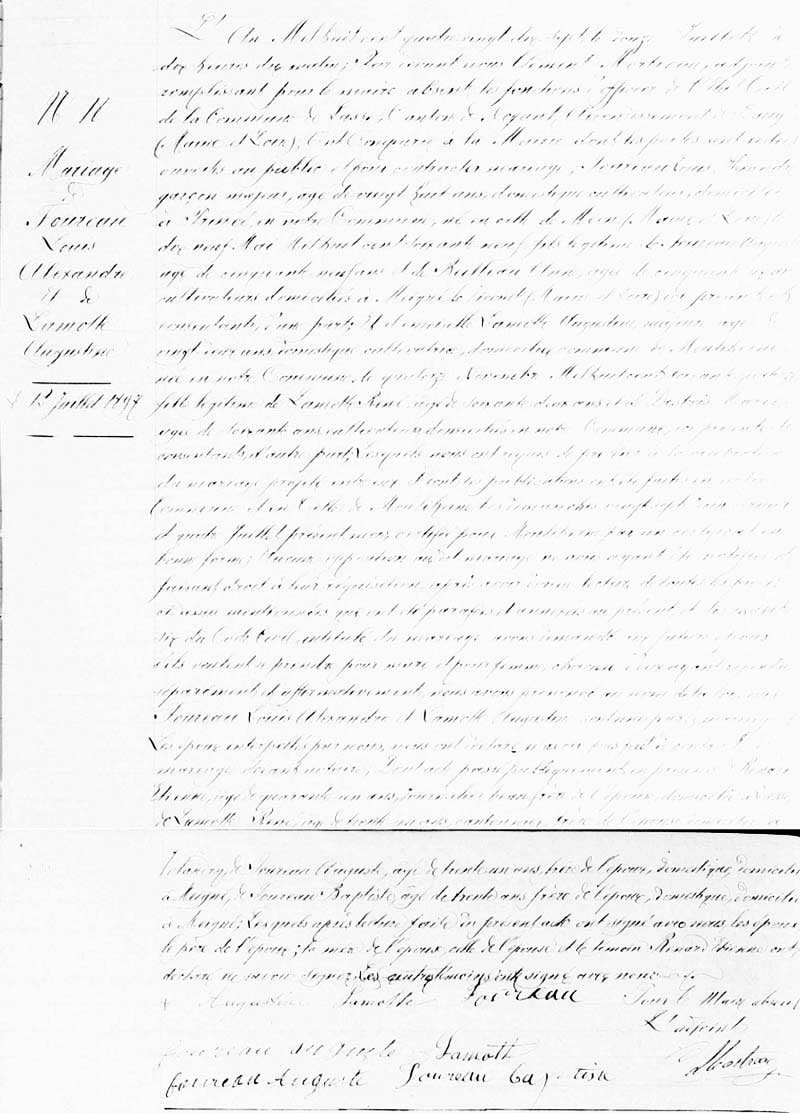 N 11
Mariage
de
Foureau
Louis
Alexandre
Et de
Lamotte
Augustine
12 Juillet 1897
L'An Mil huit cent quatre vingt dix sept le douze Juillet à
dix heures du matin; Par devant nous Clément adjoint
remplissant pour le maire absent les fonctions d'officier de l'Etat Civil
de la Commune de Lasse, Canton de Noyant, Arrondissement de Baugé
(Maine et Loire), Ont Comparu à la Mairie dont les portes sont
ouvertes au public et pour contracter mariage, Foureau Louis, Alexandre
garçon majeur, âgé de vingt huit ans, domestique cultivateur, domicilié
à en notre Commune, né en celle de Méon (Maine et Loire) le
dix neuf Mai Mil huit cent soixante neuf, fils légitime de Foureau Auguste
âgé de cinquante neuf ans et de âgée de cinquante
cultivateurs domiciliés à Meigné le Vicomte (Maine et Loire) ici présents et
consentants, d'une part; Et demoiselle Lamotte Augustine, majeure âgée de
vingt deux ans domestique cultivatrice, domiciliée commune de Mouliherne
née en notre Commune, le quatorze Novembre Mil huit cent soixante
fille légitime de Lamotte René, âgé de soixante deux ans et de
âgée de soixante ans cultivateurs domiciliés en notre Commune, ici présents et
consentants, d'autre part; Lesquels nous ont requis de procéder à la célébration
du mariage projeté entre eux et dont les publications ont été faites en notre
Commune et en Celle de Mouliherne les dimanches vingt sept Juin dernier
et quatre Juillet présent mois, certifié pour Mouliherne par un certificat en
bonne forme; Aucune opposition au dit mariage ne nous ayant été notifiée et
faisant droit à leur réquisition, après avoir donné lecture de toutes les pièces
ci dessus mentionnées qui ont été parafées et annexées au présent et du chapitre
six du Code Civil, intitulé du mariage avons demandé aux futurs époux
s'ils veulent se prendre pour mari et pour femme, chacun d'eux ayant répondu
séparément et affirmativement, nous avons prononcé au nom de la loi, que
Foureau Louis Alexandre et Lamotte Augustine sont unis par le mariage
Les époux interpellés par nous, nous ont déclaré n'avoir pas fait de contrat de
mariage devant notaire; Dont acte passé publiquement en présence de Renard
Etienne, âgé de quarante un ans, journalier beau frère de l'épouse, domicilié à Lasse,
de Lamotte René, âgé de trente ans, cantonnier, frère de l'épouse domicilié à
de Foureau Auguste, âgé de trente un ans, frère de l'époux, domestique, domicilié
à Meigné, de Foureau Baptiste, âgé de trente ans frère de l'époux, domestique, domicilié
à Meigné; Lesquels après lecture faite du présent acte ont signé avec nous, les époux
le père de l'époux; la mère de l'époux, celle de l'épouse et le témoin Renard Etienne ont
déclaré ne savoir signer. Les autres témoins ont signé avec nous
Augustine Lamotte Foureau Pour le Maire absent
L'adjoint
foureau auguste Lamotte
foureau Auguste Foureau Baptiste